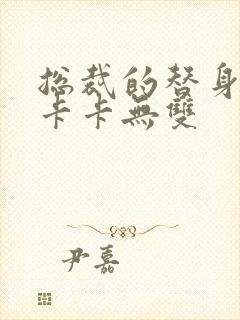 总裁的替身
卡卡無雙
尹嘉